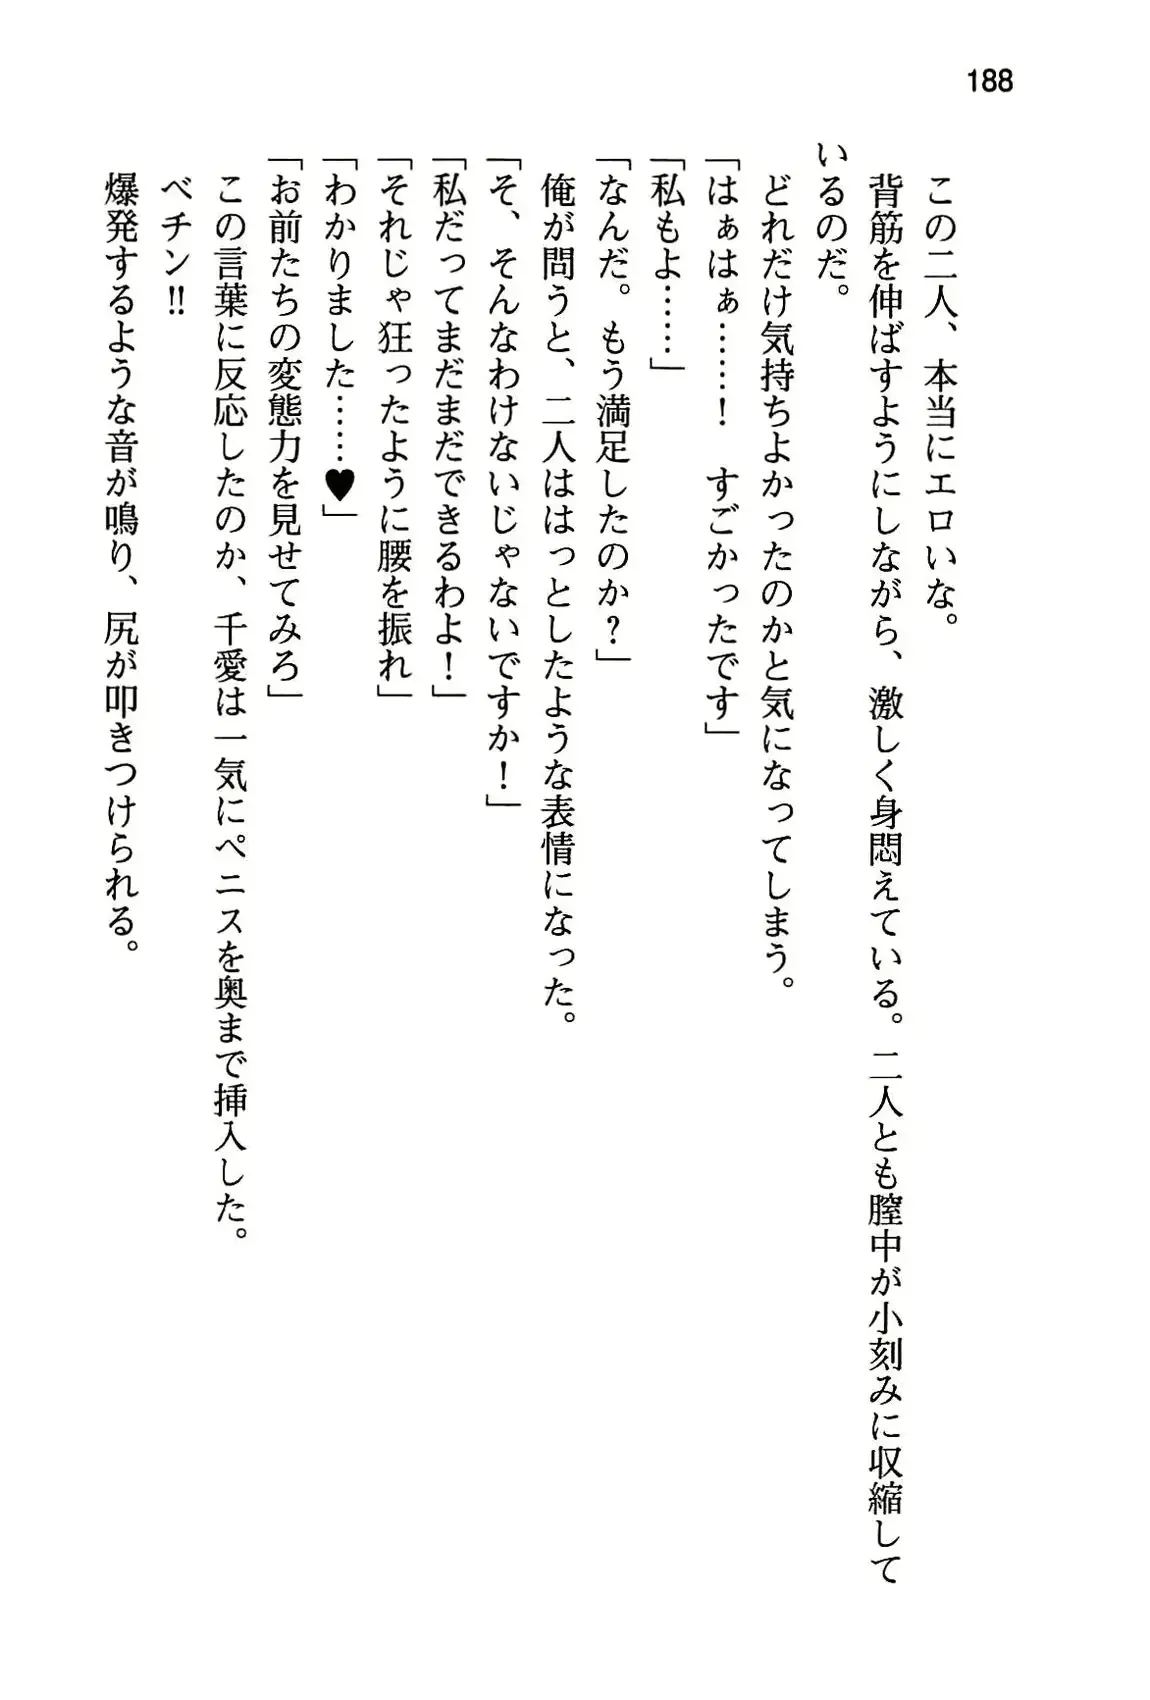 188
この二人、本当にエロいな。
背筋を伸ばすようにしながら、激しく身悶えている。二人とも膣中が小刻みに収縮して
いるのだ。
どれだけ気持ちよかったのかと気になってしまう。
「はぁはぁ……！　すごかったです」
「私もよ……」
「なんだ。もう満足したのか？」
俺が問うと、二人ははっとしたような表情になった。
「そ、そんなわけないじゃないですか！」
「私だってまだまだできるわよ！」
「それじゃ狂ったように腰を振れ」
「わかりました……♥」
「お前たちの変態力を見せてみろ」
この言葉に反応したのか、千愛は一気にペニスを奥まで挿入した。
ベチン‼
爆発するような音が鳴り、尻が叩きつけられる。